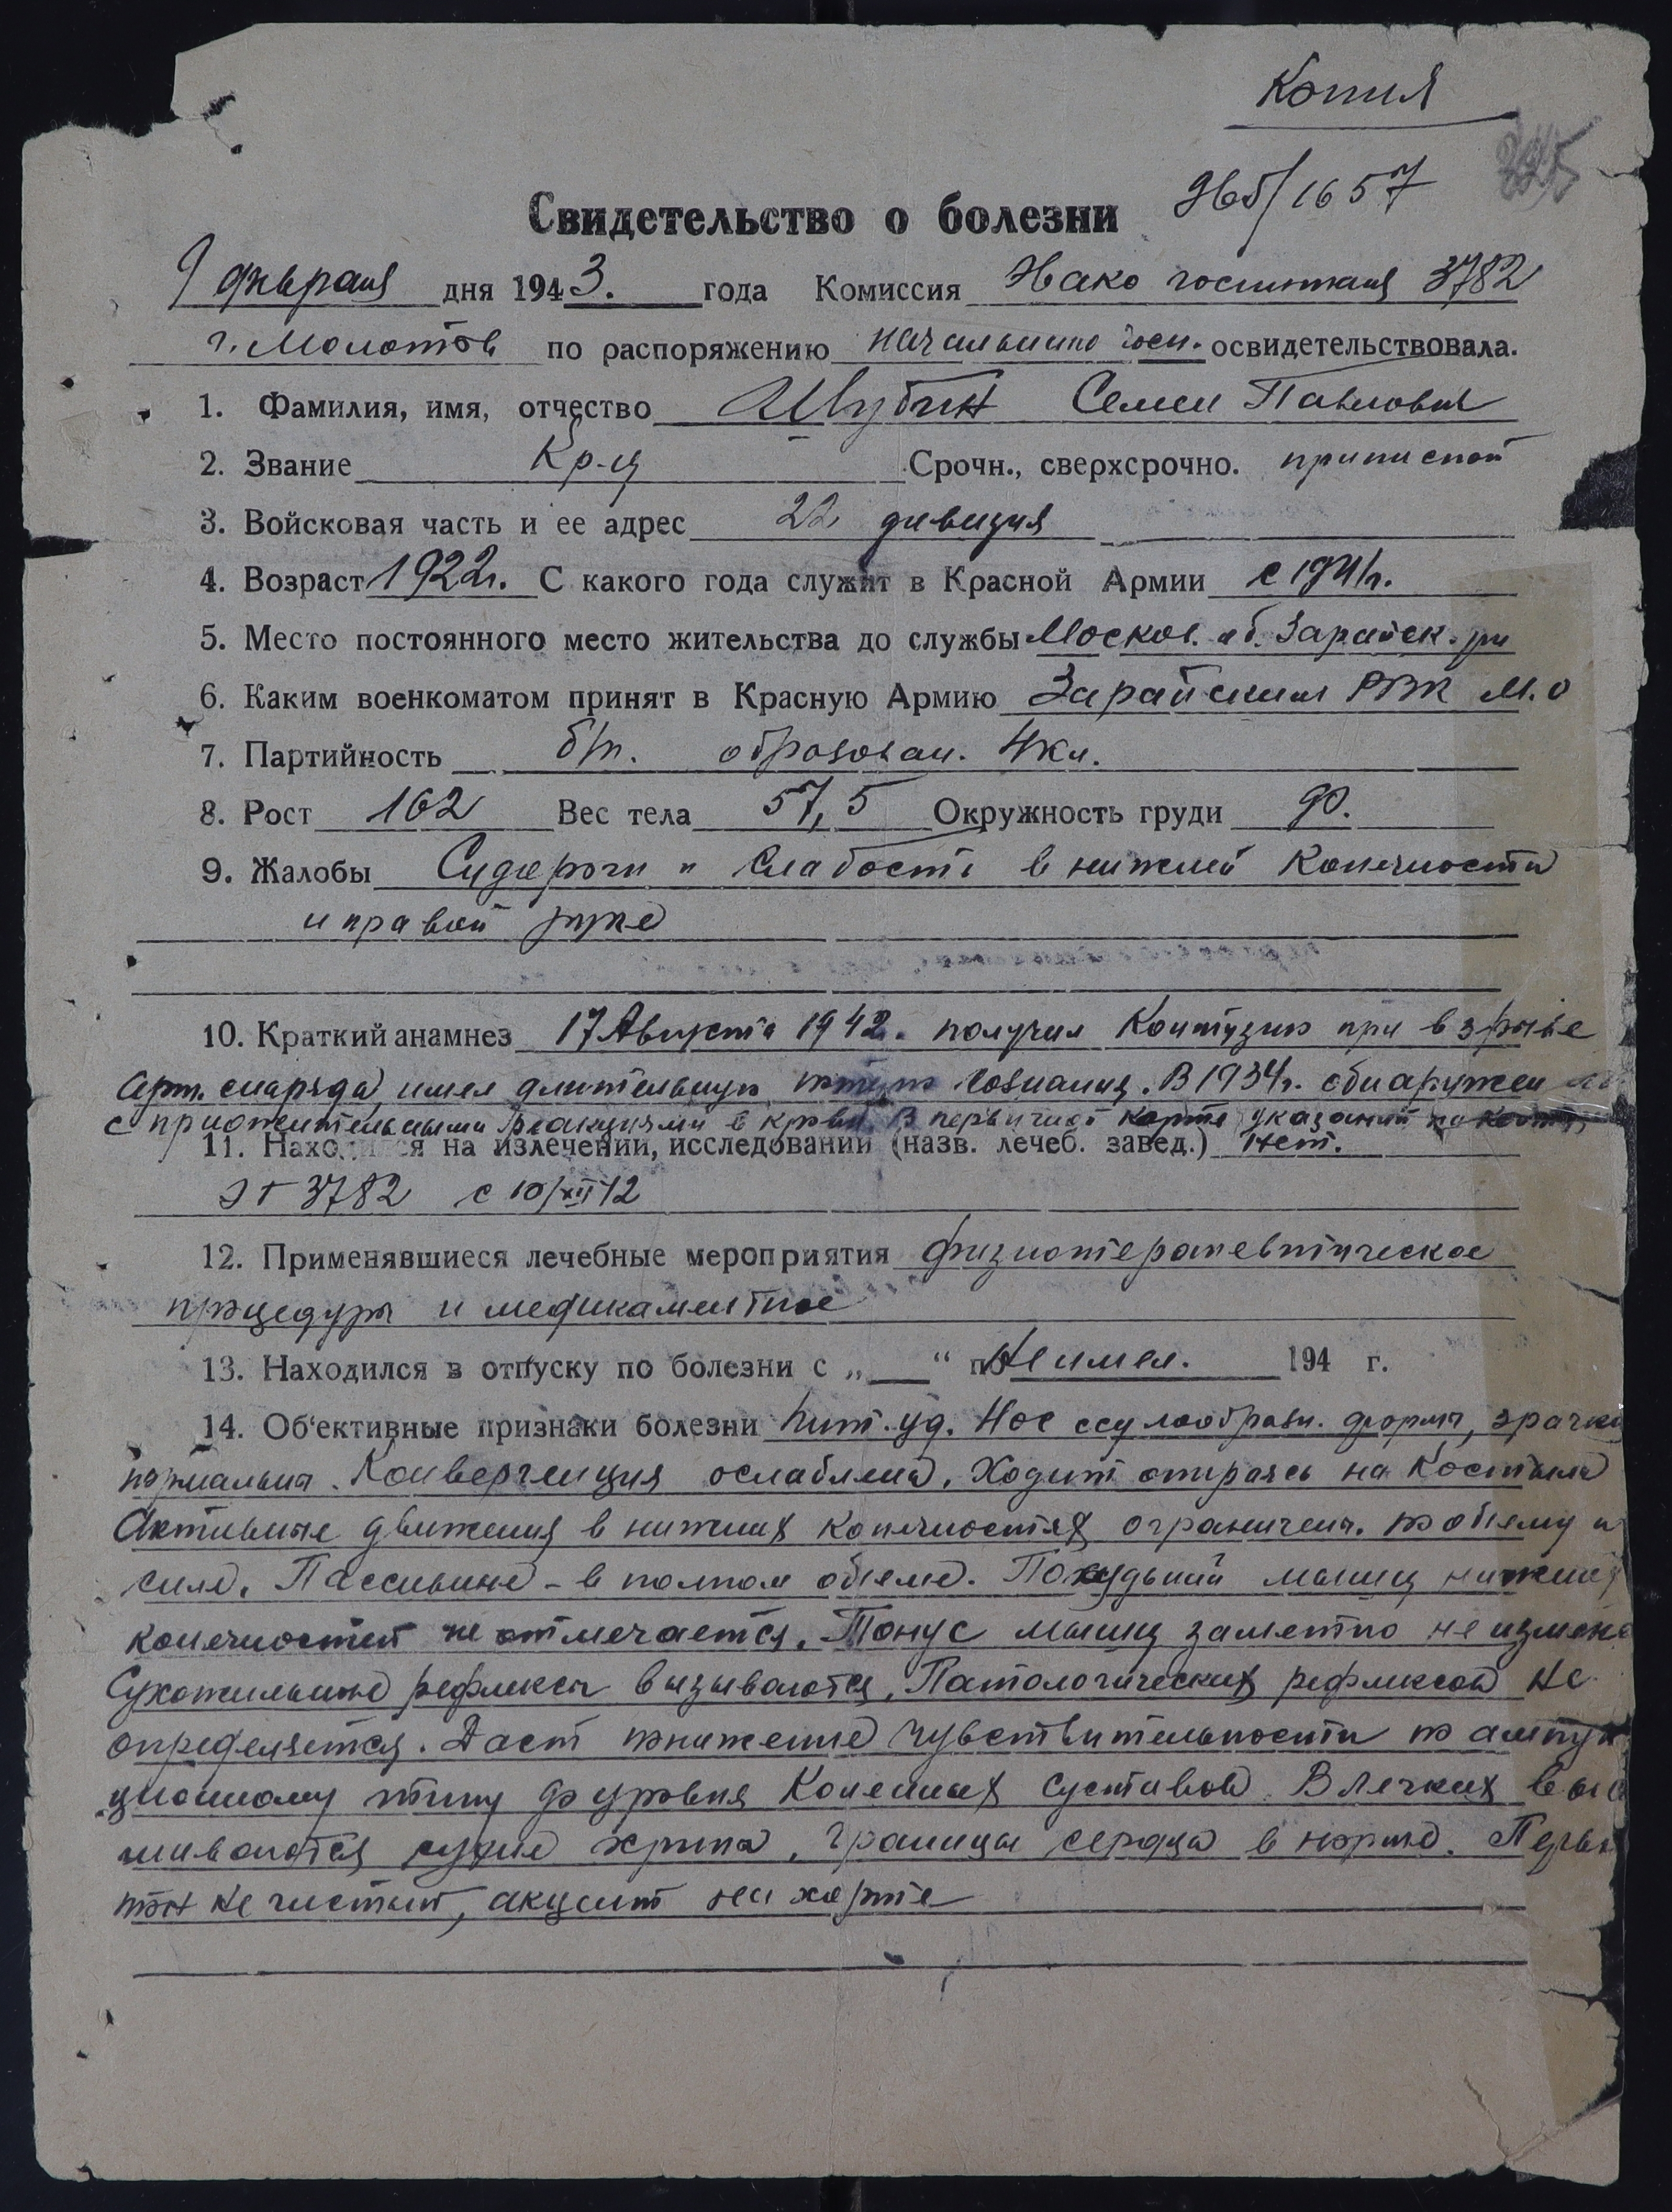 Копия
Свидетельство о болезни
9 февраля дня 1943. года Комиссия госпиталя 3782
г. Молотов по распоряжению начальника госп. освидетельствовала.
1. Фамилия, имя, отчество Шубин Семен Павлович
2. Звание Кр-ц Срочн., сверхсрочно. приписной
3. Войсковая часть и ее адрес 22 дивизия
4. Возраст 1922г. С какого года служит в Красной Армии с 1941г.
5. Место постоянного место жительства до службы Москов. об. Зарайск. рн
6. Каким военкоматом принят в Красную Армию Зарайским РВК М.О
7. Партийность б/п. образован. 4кл.
8. Рост 162 Вес тела 57,5 Окружность груди 90.
9. Жалобы Судороги и слабость в нижней конечности
и правой руке
10. Краткий анамнез 17 Августа 1942. получил Контузию при взрыве
арт. снаряда, имел длительную потерю сознания. В 1934г. обнаружен
с положительными реакциями в крови. В первичной карте указаний
11. Находился на излечении, исследовании (назв. лечеб. завед.) Нет.
ЭГ 3782 с 10/XII 42
12. Применявшиеся лечебные мероприятия физиотерапевтические
процедуры и медикаментное
13. Находился в отпуску по болезни с „ “ по Не имел. 194 г.
14. Об‘ективные признаки болезни пит. уд. Нос седлообразн. формы, зрачки
нормальны. Конвергенция ослаблена. Ходит опираясь на костыли
Активные движения в нижних конечностях ограничены. по объему и
силе. Пассивные - в полном объеме. Похудький мышц нижних
конечностей не отмечается. Тонус мышц заметно не измене
Сухожильные рефлексы вызываются. Патологических рефлексов не
определяется. Дает понижение чувствительности по ампута
ционному типу до уровня Коленных суставов. В легких выс
шиваются сухие хрипы, границы сердца в норме. Первый
тон не чистый, акцент на аорте